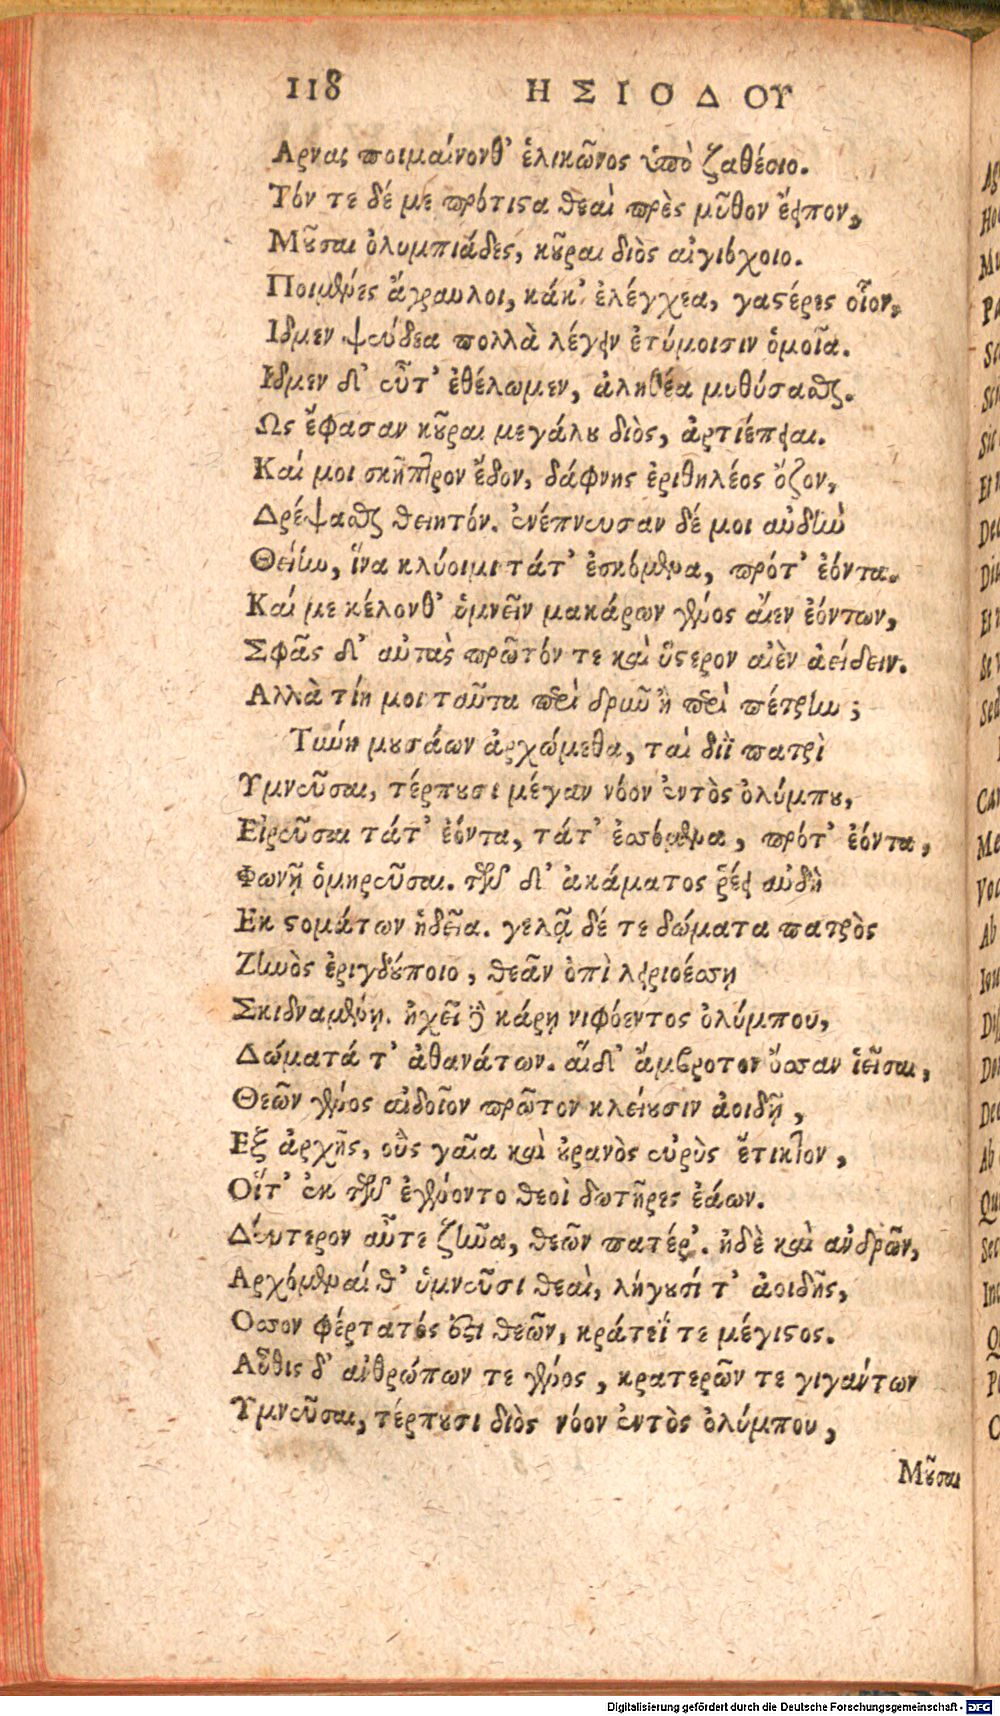 118 ΗΣΙΟΔΟΥ
Αρνας ποιμαίνονθ' ἑλικῶνος ὑπὸ ζαθέοιο.
Τόν τε δέ με πρότιςα θεαὶ πρὸς μῦθον ἔειπον,
Μοῦσαι ὀλυμπιάδες, κοῦραι διὸς αἰγιόχοιο.
Ποιμένες ἄγραυλοι, κάκ' ἐλέγχεα, γαςέρες οἶον,
Ιδμεν ψεύδεα πολλὰ λέγειν ἐτύμοισιν ὁμοῖα.
Ιδμεν δ' εὖτ' ἐθέλωμεν, ἀληθέα μυθήσασθαι.
Ως ἔφασαν κοῦραι μεγάλου διὸς, ἀρτιέπειαι.
Καί μοι σκῆπτρον ἔδον, δάφνης ἐριθηλέος ὄζον,
Δρέψασθαι θειητόν. ἐνέπνευσαν δέ μοι αὐδὴν
Θείην, ἵνα κλύοιμι τάτ' ἐσσόμενα, πρότ' ἐόντα.
Καί με κέλονθ' ὑμνεῖν μακάρων γένος ἄιεν ἐόντων,
Σφᾶς δ' αὐτὰς πρῶτόν τε καὶ ὕςερον αἰὲν ἀείδειν.
Αλλὰ τίη μοι ταῦτα περὶ δρῦν ἢ περὶ πέτρην ;
Τύνη μουσάων ἀρχώμεθα, ταὶ διῒ πατρὶ
Υμνεῦσαι, τέρπουσι μέγαν νόον ἐντὸς ὀλύμπου,
Εἰρεῦσαι τάτ' ἐόντα, τάτ' ἐσσόμενα, πρότ' ἐόντα,
Φωνῇ ὁμηρεῦσαι. τῶν δ' ἀκάματος ῥέει αὐδὴ
Εκ ςομάτων ἡδεῖα. γελᾷ δέ τε δώματα πατρὸς
Ζηνὸς ἐριγδούποιο, θεᾶν ὀπὶ λειριοέσσῃ
Σκιδναμένῃ. ἠχεῖ δὲ κάρη νιφόεντος ὀλύμπου,
Δώματά τ' ἀθανάτων. αἵδ' ἄμβροτον ὄσσαν ἱεῖσαι,
Θεῶν γένος αἰδοῖον πρῶτον κλείουσιν ἀοιδῇ,
Εξ ἀρχῆς, οὓς γαῖα καὶ οὐρανὸς εὐρὺς ἔτικτον,
Οἵτ' ἐκ τῶν ἐγένοντο θεοὶ δωτῆρες ἐάων.
Δεύτερον αὖτε ζῆνα, θεῶν πατέρ'. ἠδὲ καὶ ἀνδρῶν,
Αρχόμεναί θ' ὑμνεῦσι θεαὶ, λήγουσί τ' ἀοιδῆς,
Οσσον φέρτατός ἐςι θεῶν, κράτεΐ τε μέγιςος.
Αὖθις δ' ἀνθρώπων τε γένος, κρατερῶν τε γιγάντων
Υμνεῦσαι, τέρπουσι διὸς νόον ἐντὸς ὀλύμπου,
Μοῦσαι
Digitalisierung gefördert durch die Deutsche Forschungsgemeinschaft - DFG